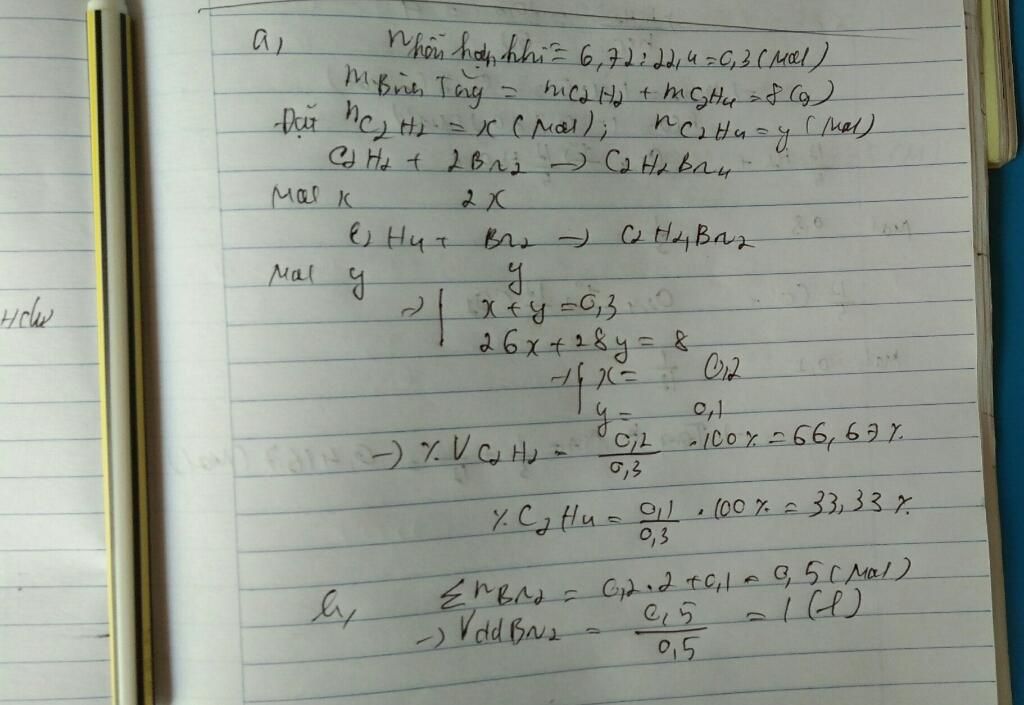 a, nhỗn hợp khí = 6,72 : 22,4 = 0,3 (mol)
mBình Tăng = mC2H2 + mC2H4 = 8 (g)
Đặt nC2H2 = x (mol); nC2H4 = y (mol)
C2H2 + 2Br2 → C2H2Br4
Mol x 2x
C2H4 + Br2 → C2H4Br2
Mol y y
→ x + y = 0,3
26x + 28y = 8
→ { x = 0,2
y = 0,1
→ % V C2H2 = 0,2/0,3 . 100% = 66,67 %
% C2H4 = 0,1/0,3 . 100 % = 33,33 %.
b, Σ nBr2 = 0,2.2 + 0,1 = 0,5 (mol)
→ VddBr2 = 0,5/0,5 = 1 (l)